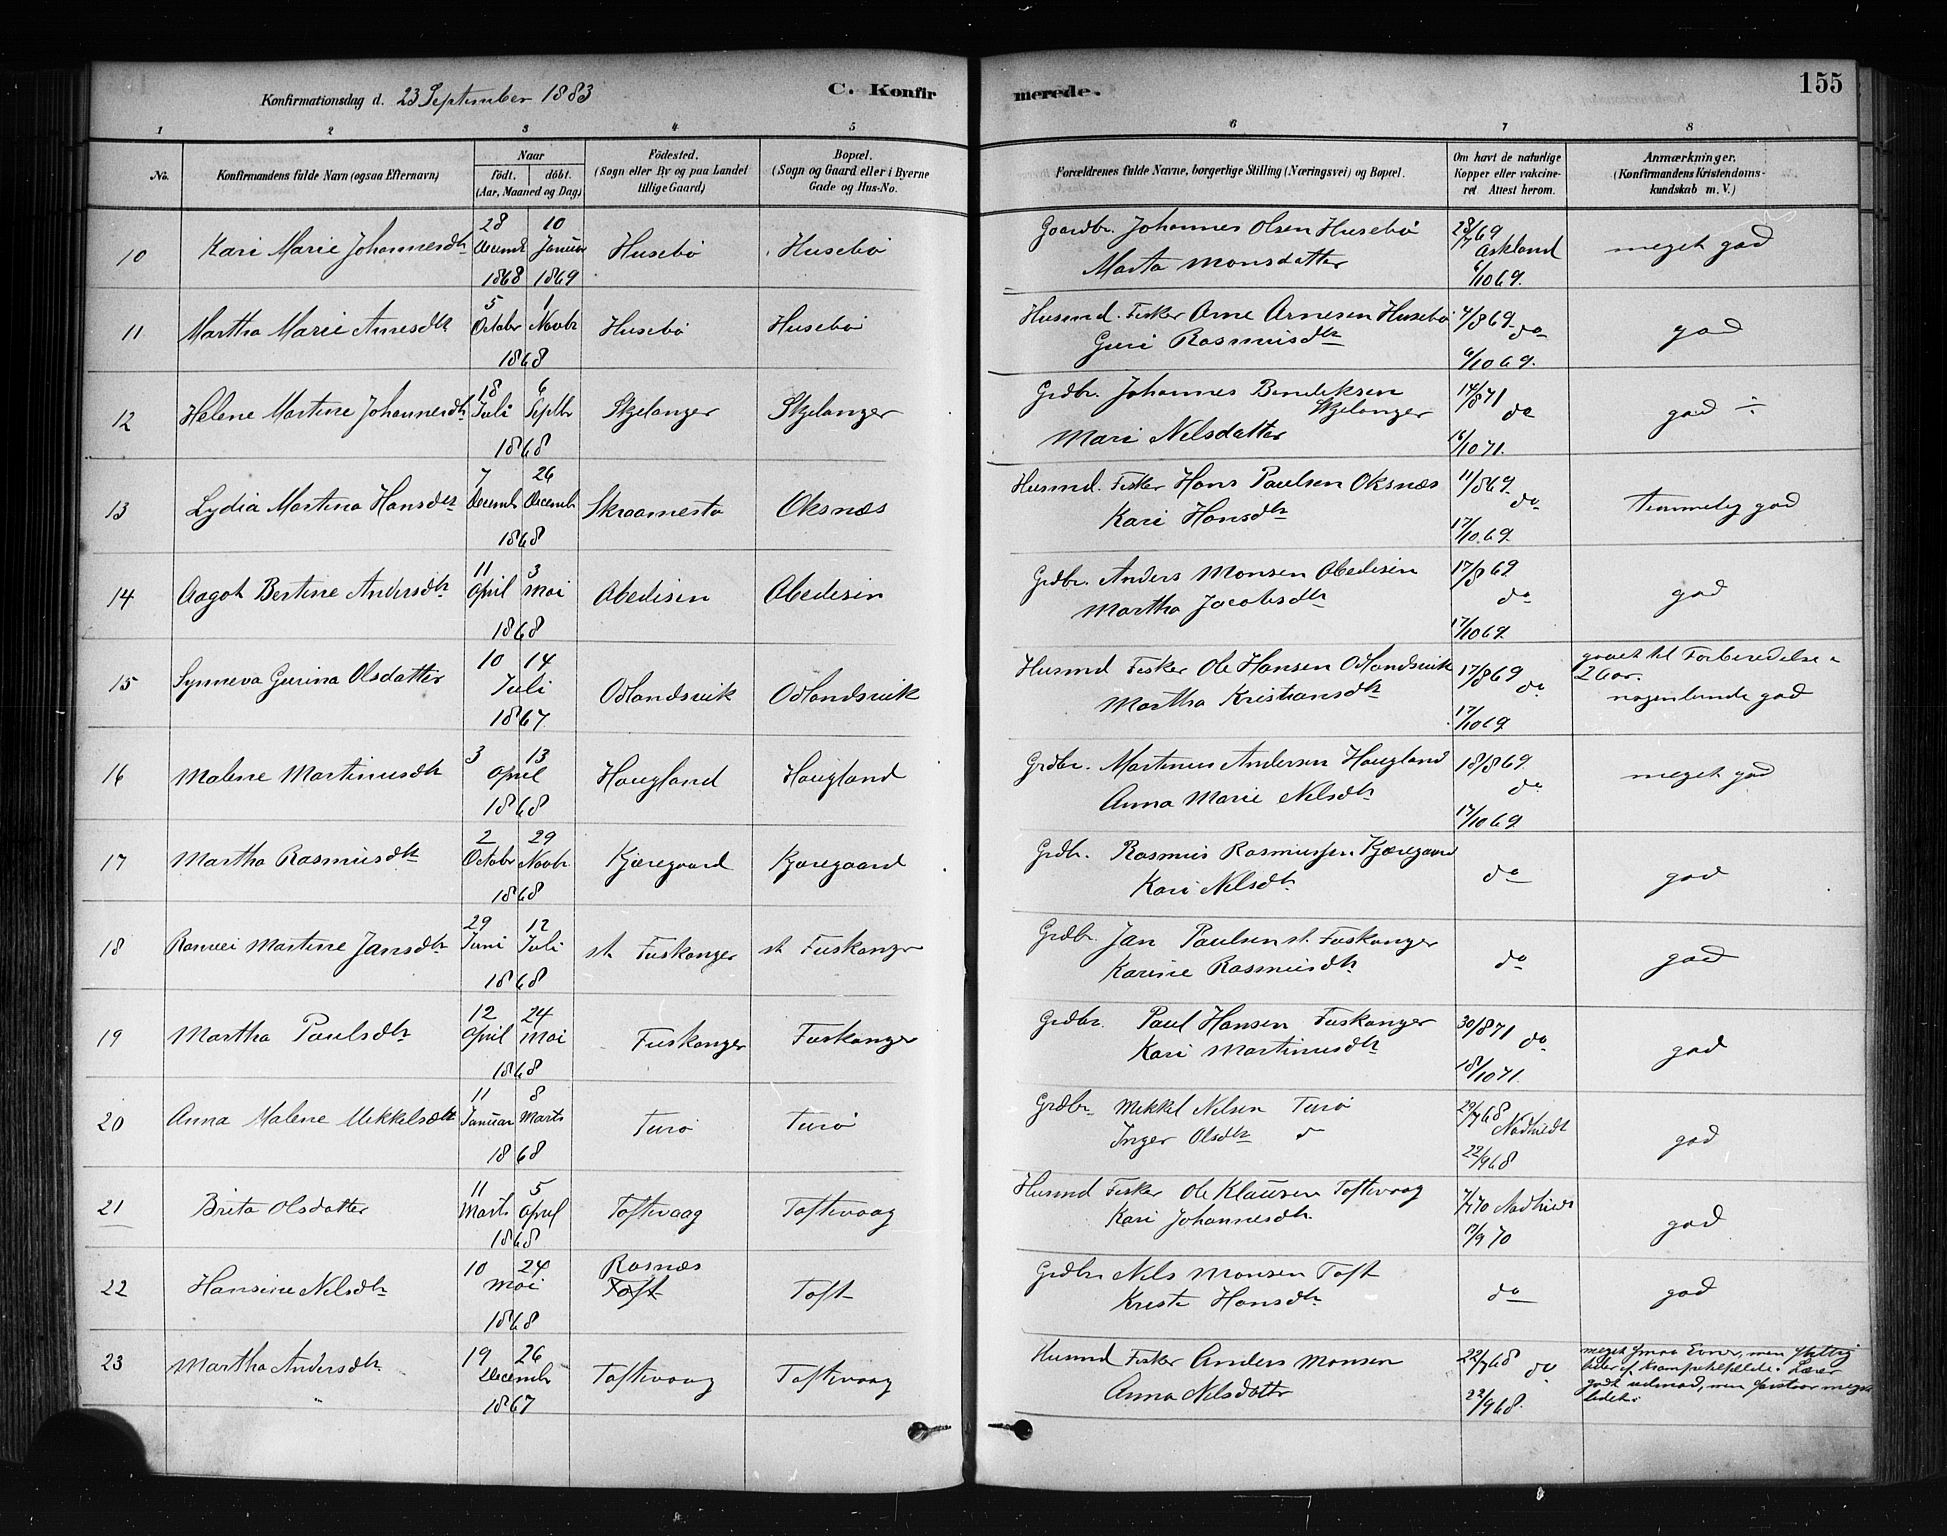 Konfirmationsdag d. 23 September 1883 C. Konfirmerede. 155
1 2 3 4 5 6 7 8
No. Konfirmandens fulde Navn (ogsaa Efternavn) Naar født. døbt. (Aar, Maaned og Dag) Fødested. (Sogn eller By og paa Landet tillige Gaard) Bopæl. (Sogn og Gaard eller i Byerne Gade og Hus-No. Forældrenes fulde Navne, borgerlige Stilling (Næringsvei) og Bopæl. Om havt de naturlige Kopper eller vakcineret. Attest herom. Anmærkninger. (Konfirmandens Kristendomskundskab m. V.)
28 10 Gaardbr. Johannes Olsen Husebø 28/7 69
10 Kari Marie Johannesdtr Decemb Januar Husebø Husebø Askland meget god
1868 1869 Marta Monsdatter 6/10 69.
5 1 Husmd. Fisker Arne Arnesen Husebø 4/8 69
11 Martha Marie Arnesdtr Octobr Novbr Husebø Husebø do god
1868 Guri Rasmusdtr 6/10 69.
18 6 Grdbr. Johannes Bendiksen 14/8 71
12 Helene Martine Johannesdtr Juli Septbr Skjelanger Skjelanger Skjelanger do god ÷
1868 Mari Nelsdatter 16/10 71.
7 26 Husmd. Fisker Hans Paulsen Oksnæs 11/8 69
13 Lydia Martina Hansdtr Decemb Decembr Skraamestø Oksnæs do temmelig god
1868 Kari Hansdtr 17/10 69.
11 3 Grdbr. Anders Monsen Abedisen 17/8 69
14 Aagot Bertine Andersdtr April Mai Abedisen Abedisen do god
1868 Martha Jacobsdtr 17/10 69.
10 14 Husmd Fisker Ole Hansen Odlandsvik 17/8 69 gaaet til Forberedelse
15 Synneva Gurina Olsdatter Juli Odlandsvik Odlandsvik do 2 Aar.
1867 Martha Kristiansdtr 17/10 69 nogenlunde god
3 13 Grdbr. Martinus Andersen Haugland 18/8 69
16 Malene Martinusdtr April Haugland Haugland do meget god
1868 Anna Marie Nelsdtr 17/10 69
2 29 Grdbr. Rasmus Rasmussen Kjæregaard
17 Martha Rasmusdtr Octobr Novbr Kjæregaard Kjæregaard do god
1868 Kari Nelsdtr
29 12 Grdbr. Jan Paulsen st. Fuskanger
18 Ranvei Martine Jansdtr Juni Juli st. Fuskanger st Fuskangr do god
1868 Karine Rasmusdtr
12 24 Grdbr. Paul Hansen Fuskanger 30/8 71
19 Martha Paulsdtr April Mai Fuskanger Fuskanger do god
1868 Kari Martinusdtr 18/10 71.
11 8 Grdbr. Mikkel Nelsen Turø 29/7 68
20 Anna Malene Mikkelsdtr Januar Marts Turø Turø Nodtvedt god
1868 Inger Olsdtr do 22/9 68
11 5 Husmd Fisker Ole Klausen Toftevaag 7/7 70 Nodtvedt
21 Brita Olsdatter Marts April Toftevaag Toftevaag god
1868 Kari Johannesdtr. 17/9 70
10 24 Rosnæs Grdbr Nils Monsen Toft
22 Hansine Nelsdtr Mai Toft Toft do god
1868 Kristi Hansdtr
19 26 Husmd Fisker Anders Monsen 22/7 68 meget smaa Evner, men flittig
23 Martha Andersdtr. Decembr Toftevaag Toftevaag do lider af krampetilfælde. Læser
1867 Anna Nelsdatter 22/9 68. godt udenad, men forstaar meget lidet.